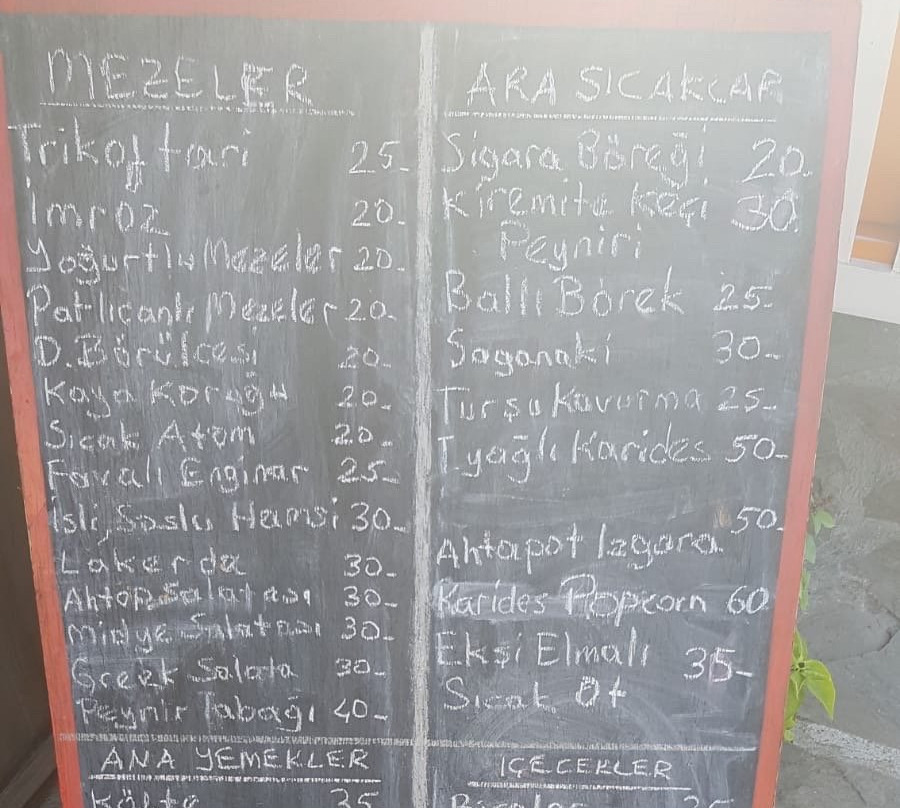 MEZELER
Trikoftari 25-
İmroz 20-
Yoğurtlu Mezeler 20-
Patlıcanlı Mezeler 20-
D.Börülcesi 20-
Kaya Koruğu 20-
Sıcak Atom 20-
Favalı Enginar 25-
İsli, Soslu Hamsi 30-
Lakerda 30-
Ahtop Salatası 30-
Midye Salatası 30-
Greek Salata 30-
Peynir Tabağı 40-
ANA YEMEKLER
Köfte 35
ARA SICAKLAR
Sigara Böreği 20-
Kiremitte Keçi 30-
Peyniri
Ballı Börek 25-
Saganaki 30-
Turşu Kavurma 25-
Tyağlı Karides 50-
Ahtapot Izgara 50-
Karides Popcorn 60
Ekşi Elmalı 35-
Sıcak Ot
İÇECEKLER
35